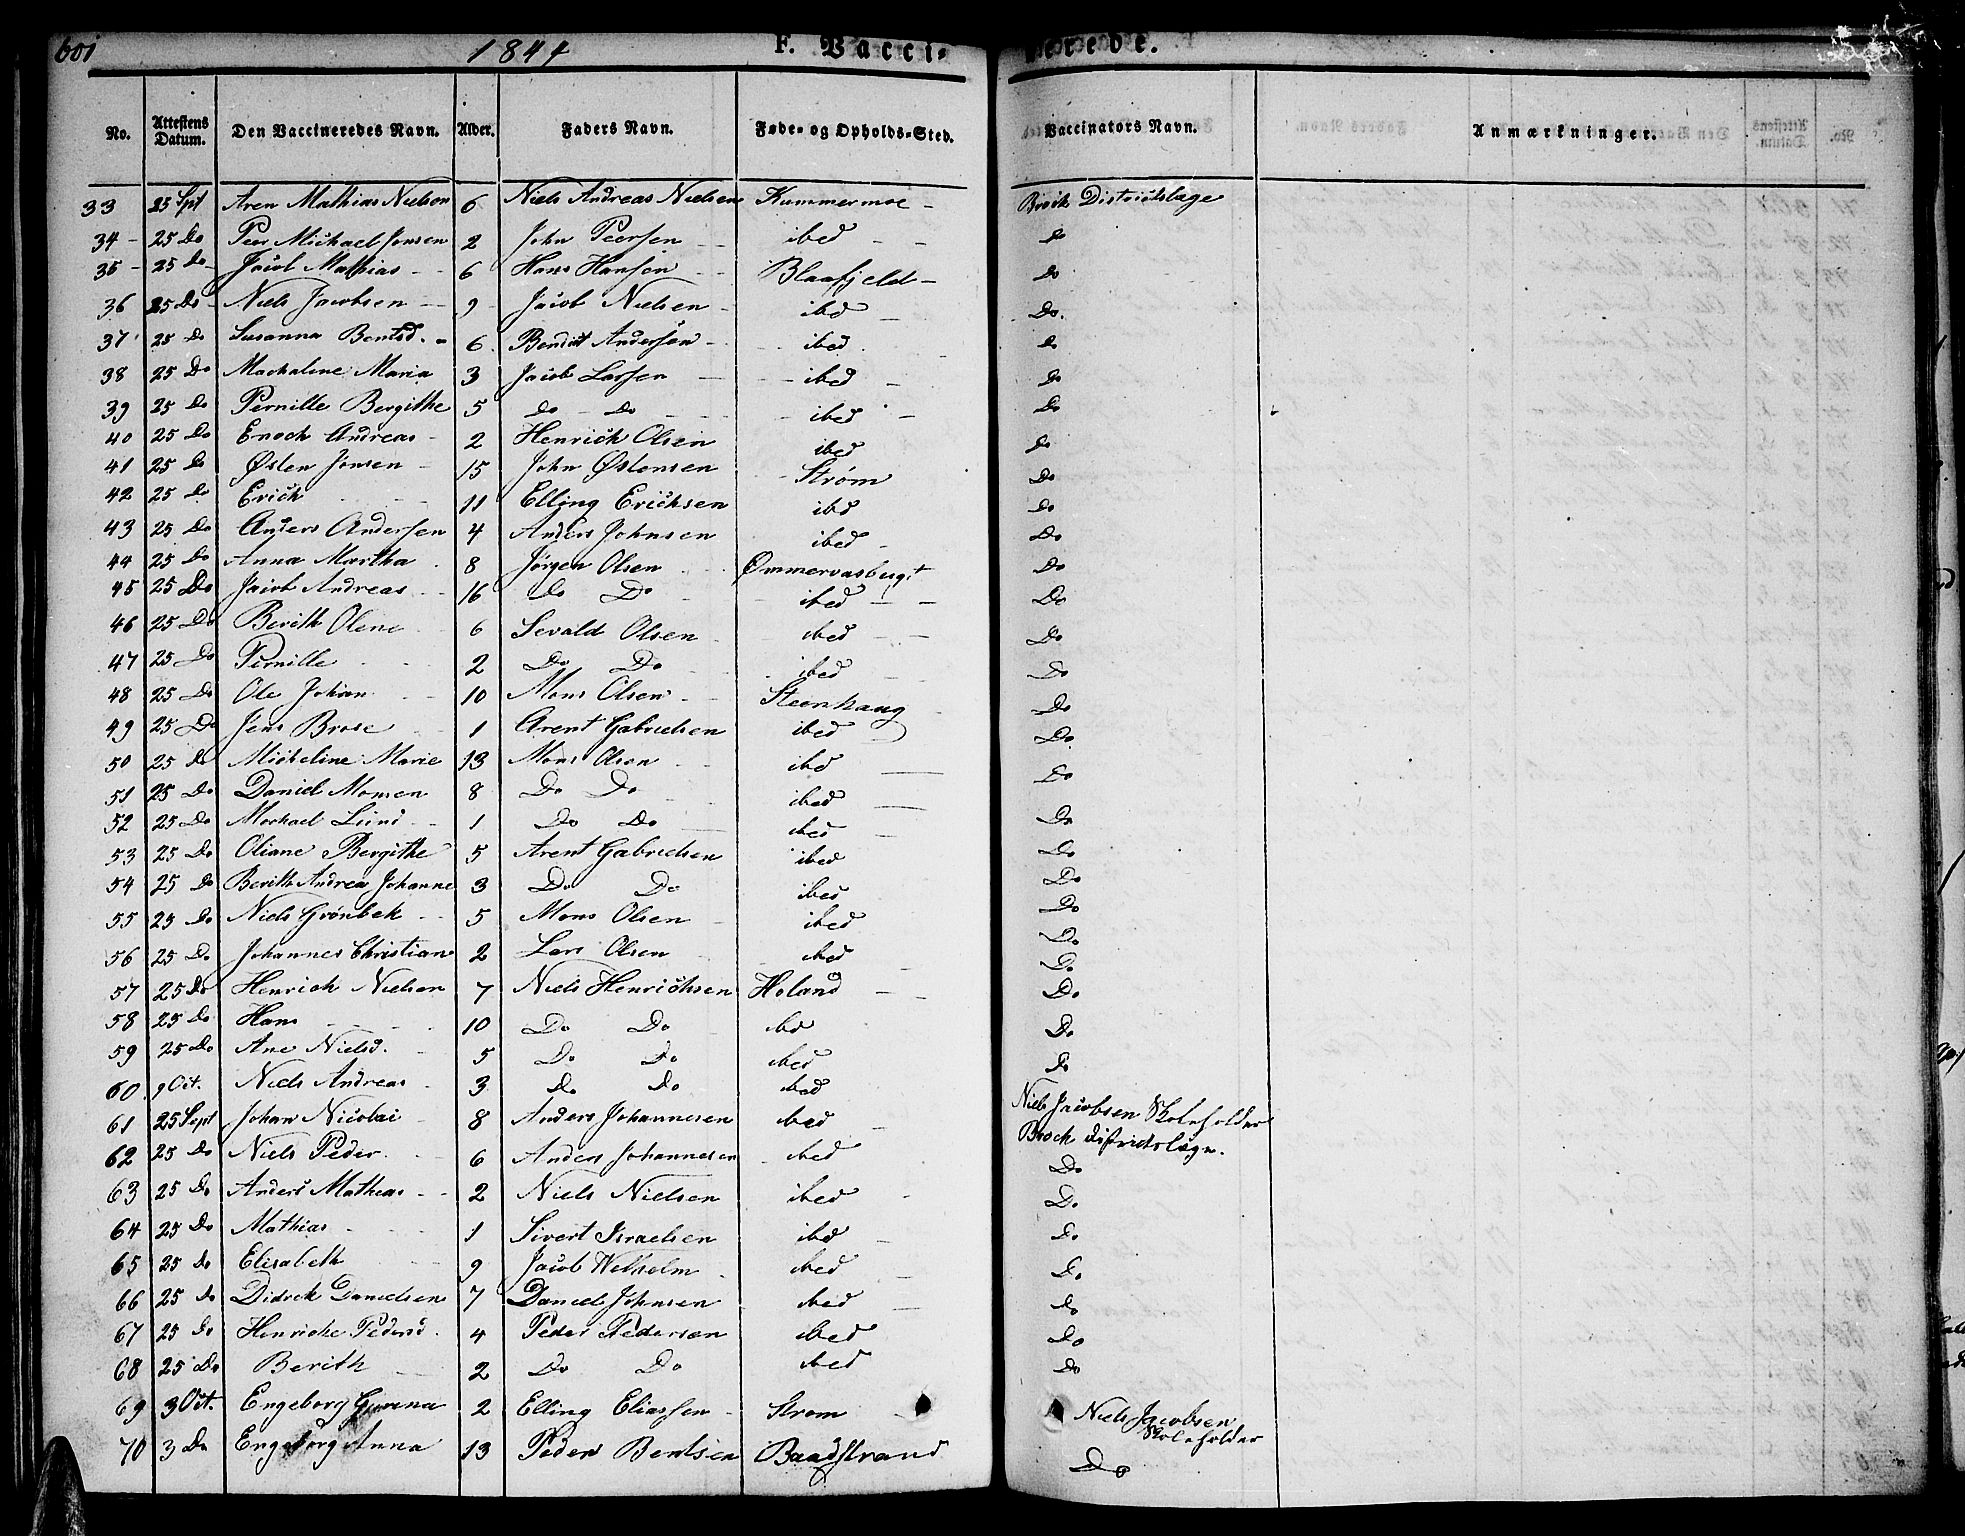 601 1844 F. Vacci- nerede.
No. Attestens Datum. Den Vaccineredes Navn. Alder. Faders Navn. Føde- og Opholds-Sted. Vaccinators Navn. Anmærkninger.
33 25 Spt Aren Mathias Nielsen 6 Niels Andreas Nielsen Kummermoe Brock Districtslæge
34 25 Do Peer Michael Jonsen 2 John Peersen ibed Do
35 25 Do Jacob Mathias 6 Hans Hansen Blaafjeld Do
36 25 Do Niels Jacobsen 9 Jacob Nielsen ibd Do.
37 25 Do Susanna Bentsd. 6 Bendict Andersen ibed Do
38 25 Do Machalene Maria 3 Jacob Larsen ibed Do
39 25 Do Pernille Bergithe 5 Do Do ibed Do
40 25 Do Enoch Andreas 2 Henrich Olsen ibed Do
41 25 Do Østen Jonsen 15 John Østensen Strøm Do
42 25 Do Erich 11 Elling Erichsen ibd Do
43 25 Do Anders Andersen 4 Anders Johnsen ibed Do
44 25 Do Anna Martha 8 Jørgen Olsen Ømmervasbugt Do
45 25 Do Jacob Andreas 16 Do Do ibed Do
46 25 Do Berith Olene 6 Sevald Olsen ibed Do
47 25 Do Pernille 2 Do Do ibed Do
48 25 Do Ole Johan 10 Mons Olsen Steenhaug Do
49 25 Do Jens Brose 1 Arent Gabrielsen ibed Do
50 25 Do Micheline Marie 13 Mons Olsen ibd Do
51 25 Do Daniel Monsen 8 Do Do ibed
52 25 Do Mochael Lund 1 Do Do ibed Do
53 25 Do Oliane Bergithe 5 Arent Gabrielsen ibed Do
54 25 Do Berith Andrea Johanne 3 Do Do ibed Do
55 25 Do Niels Grönbek 5 Mons Olsen ibed Do
56 25 Do Johannes Christian 2 Lars Olsen ibed Do
Do
57 25 Do Henrich Nielsen 7 Niels Henrichsen Holand Do
58 25 Do Hans 10 Do Do ibd Do
59 25 Do Ane Nielsd. 5 Do Do ibed Do
60 9 Oct. Niels Andreas 3 Do Do ibed Niels Jacobsen Skoleholder
61 25 Sept Johan Nicolai 8 Anders Johannesen ibed Brock Districtslæge.
62 25 Do Niels Peder 6 Anders Johannesen ibed Do
63 25 Do Anders Mathias 2 Niels Nielsen ibed Do
64 25 Do Mathias 1 Sivert Israelsen ibd Do
65 25 Do Elisabeth 9 Jacob Wilhelm ibed Do
66 25 Do Didrek Danielsen 7 Daniel Johnsen ibed Do
67 25 Do Henriche Pedersd. 4 Peder Pedersen ibed Do
68 25 Do Berith 2 Do Do ibed Do
69 3 Oct. Engeborg Gurina 2 Elling Eliassen Strøm Niels Jacobsen
Skoleholder
70 3 Do Engeborg Anna 13 Peder Bentsen Baadstrand Do